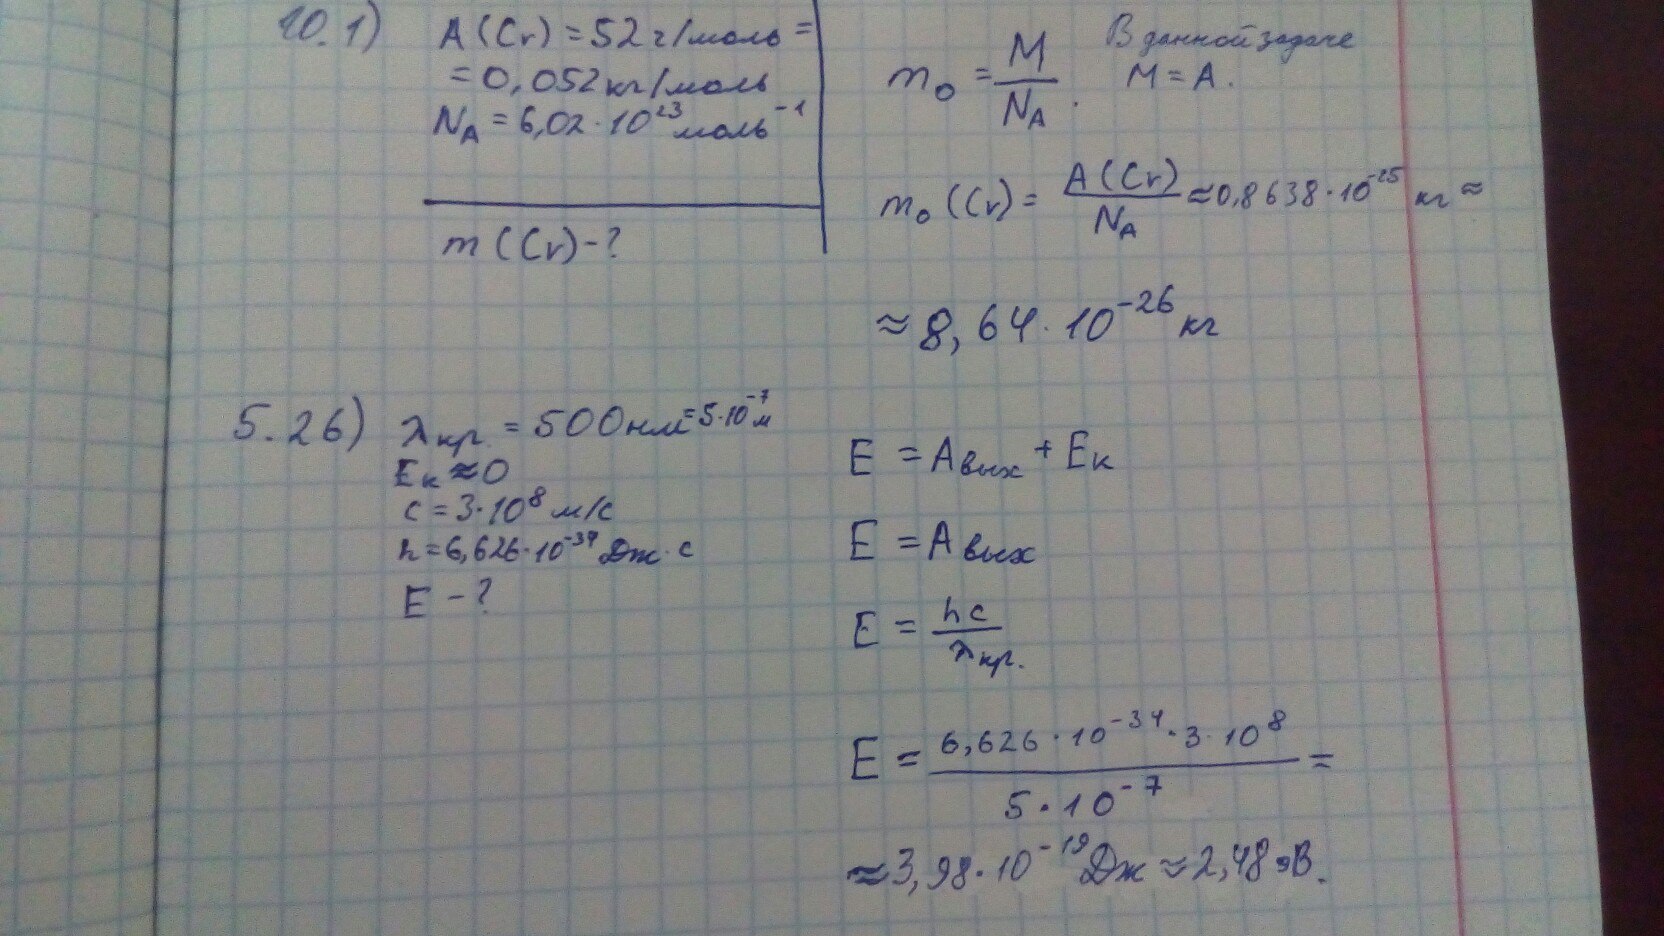 10.1)
A(Cr) = 52 г/моль =
= 0,052 кг/моль
N_A = 6,02·10^23 моль^-1
m(Cr) - ?
m_0 = M/N_A. В данной задаче
M = A.
m_0(Cr) = A(Cr)/N_A ≈ 0,8638·10^-25 кг ≈
≈ 8,64·10^-26 кг
5.26)
λ_кр. = 500 нм = 5·10^-7 м
E_к ≈ 0
c = 3·10^8 м/с
h = 6,626·10^-34 Дж·с
E - ?
E = A_вых + E_к
E = A_вых
E = hc/λ_кр.
E = 6,626·10^-34·3·10^8/5·10^-7 =
≈ 3,98·10^-19 Дж ≈ 2,48 эВ.